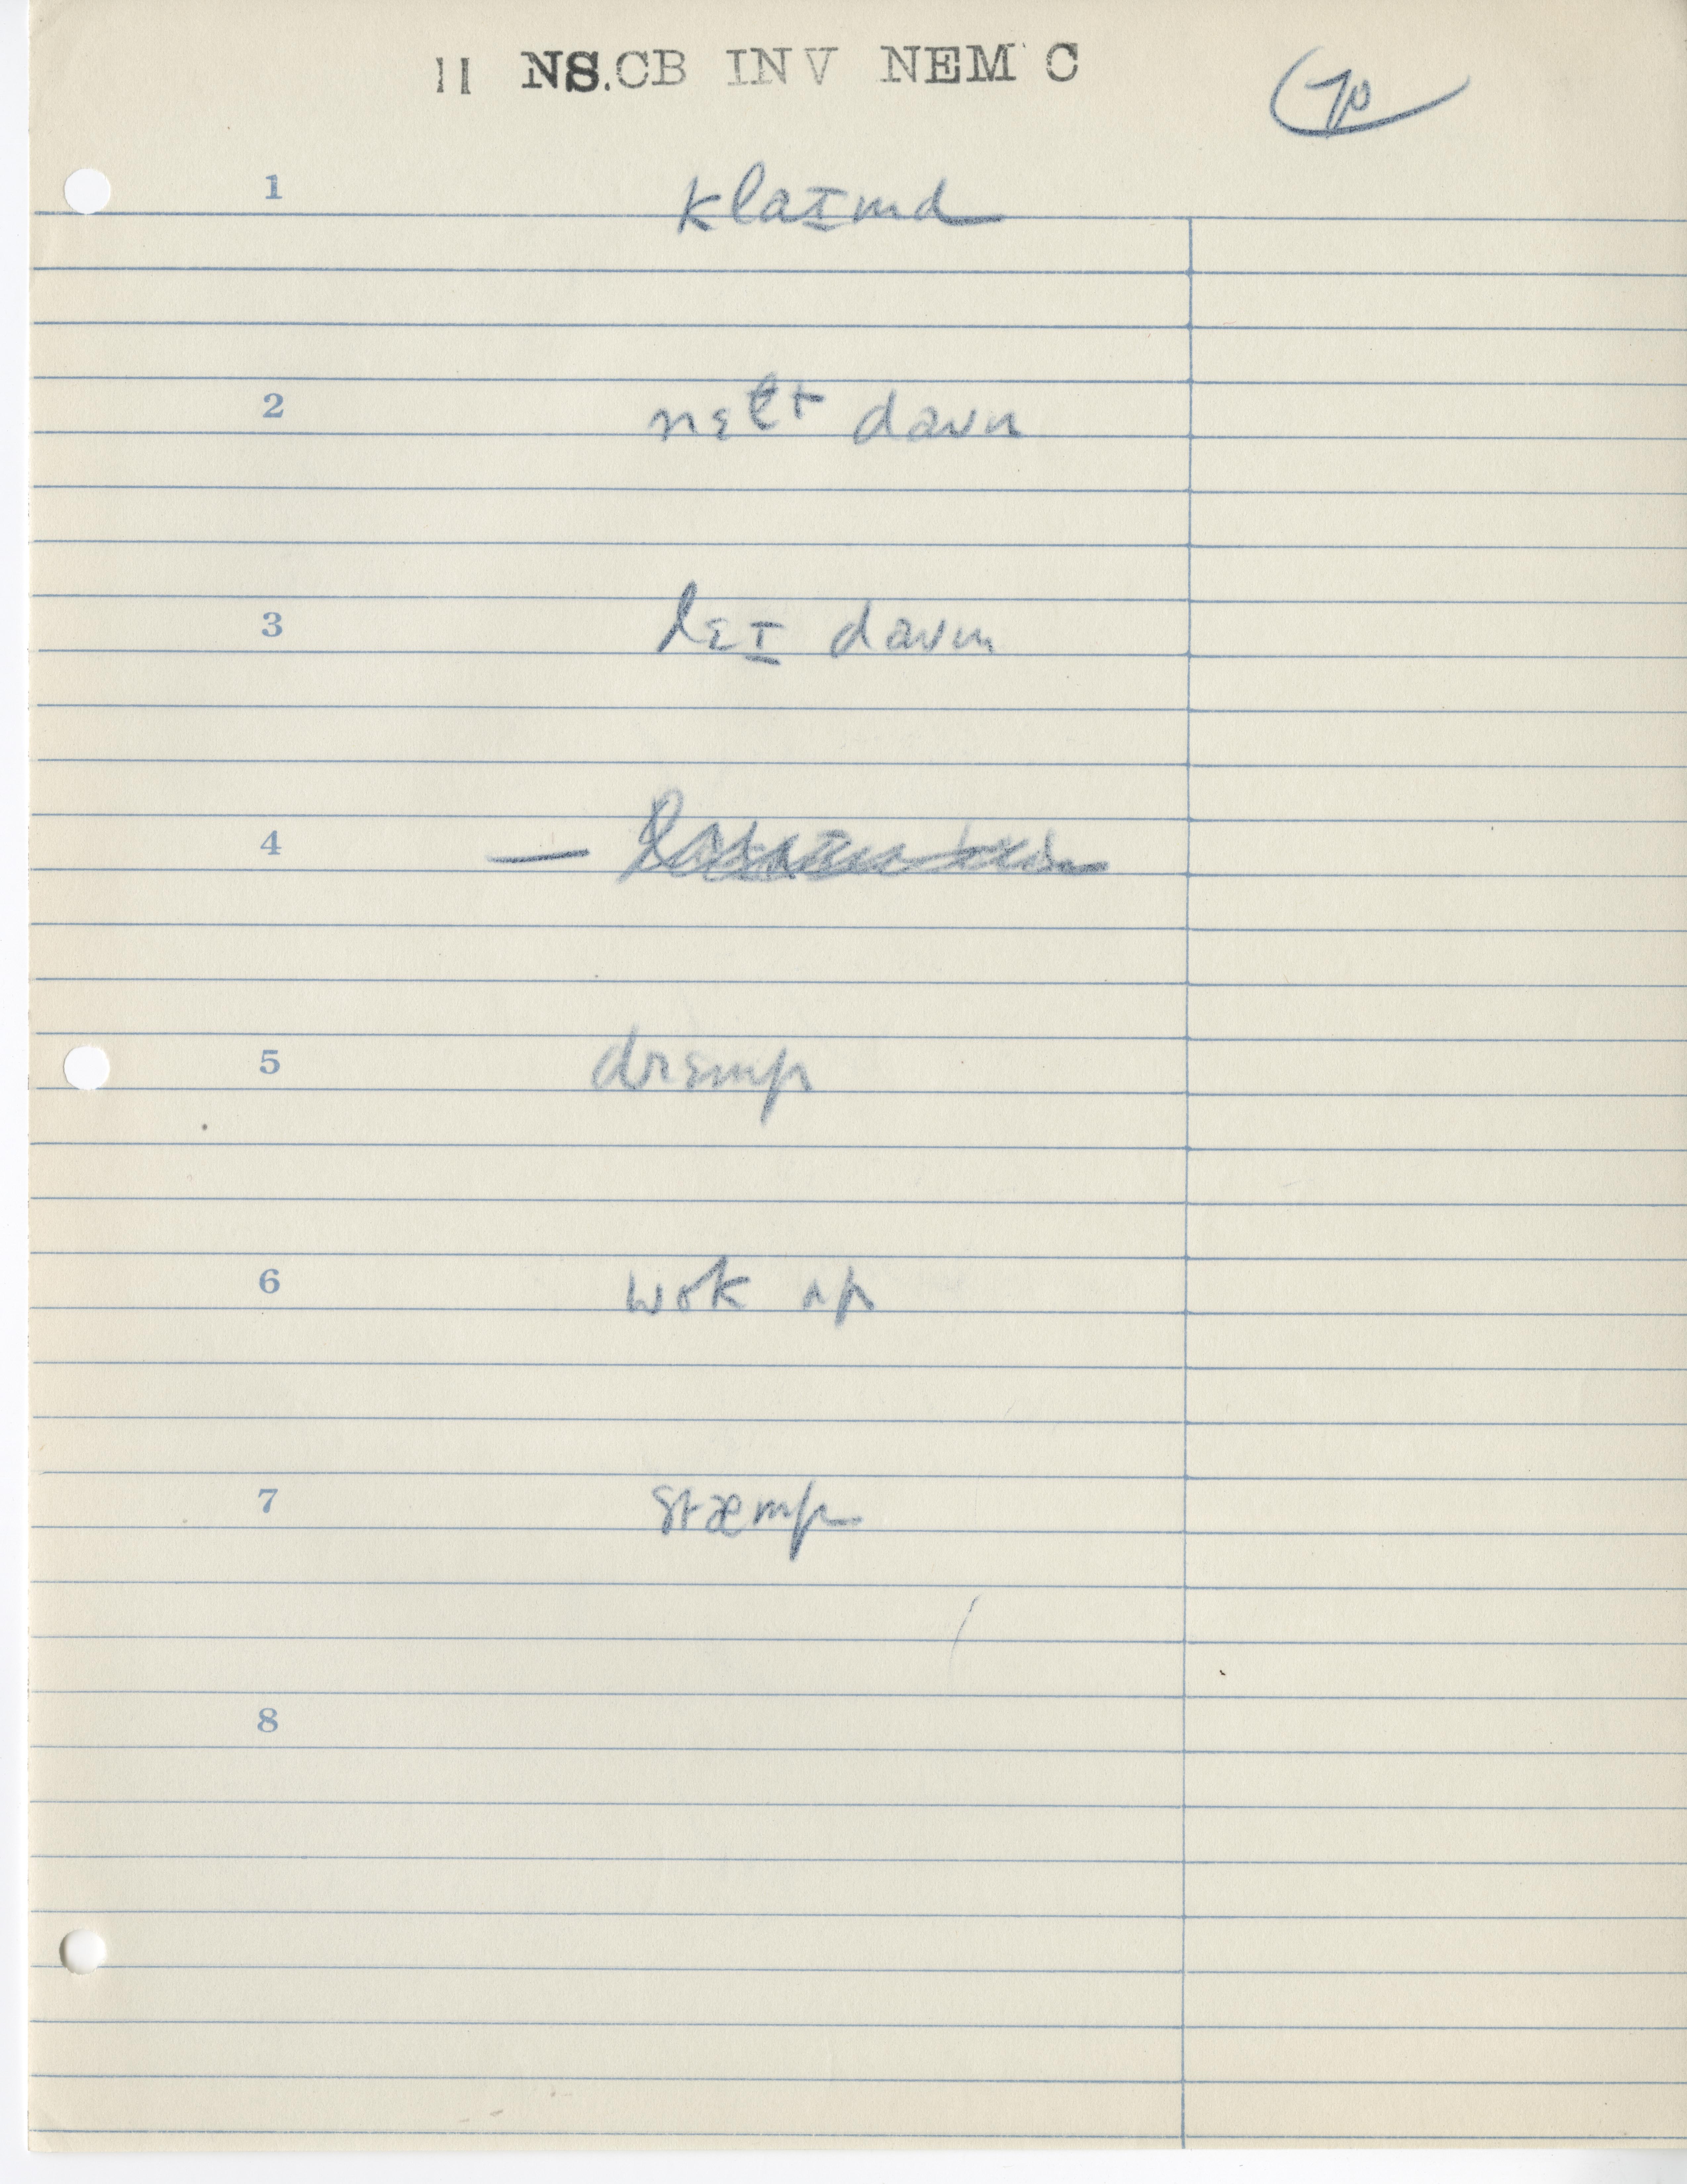 11 NS.CB INV NEM C
70
1 klaɪmd
2 nɛlt daʊn
3 lɛɪ daʊn
4 —
5 drɛmp
6 wok ʌp
7 stæmp
8